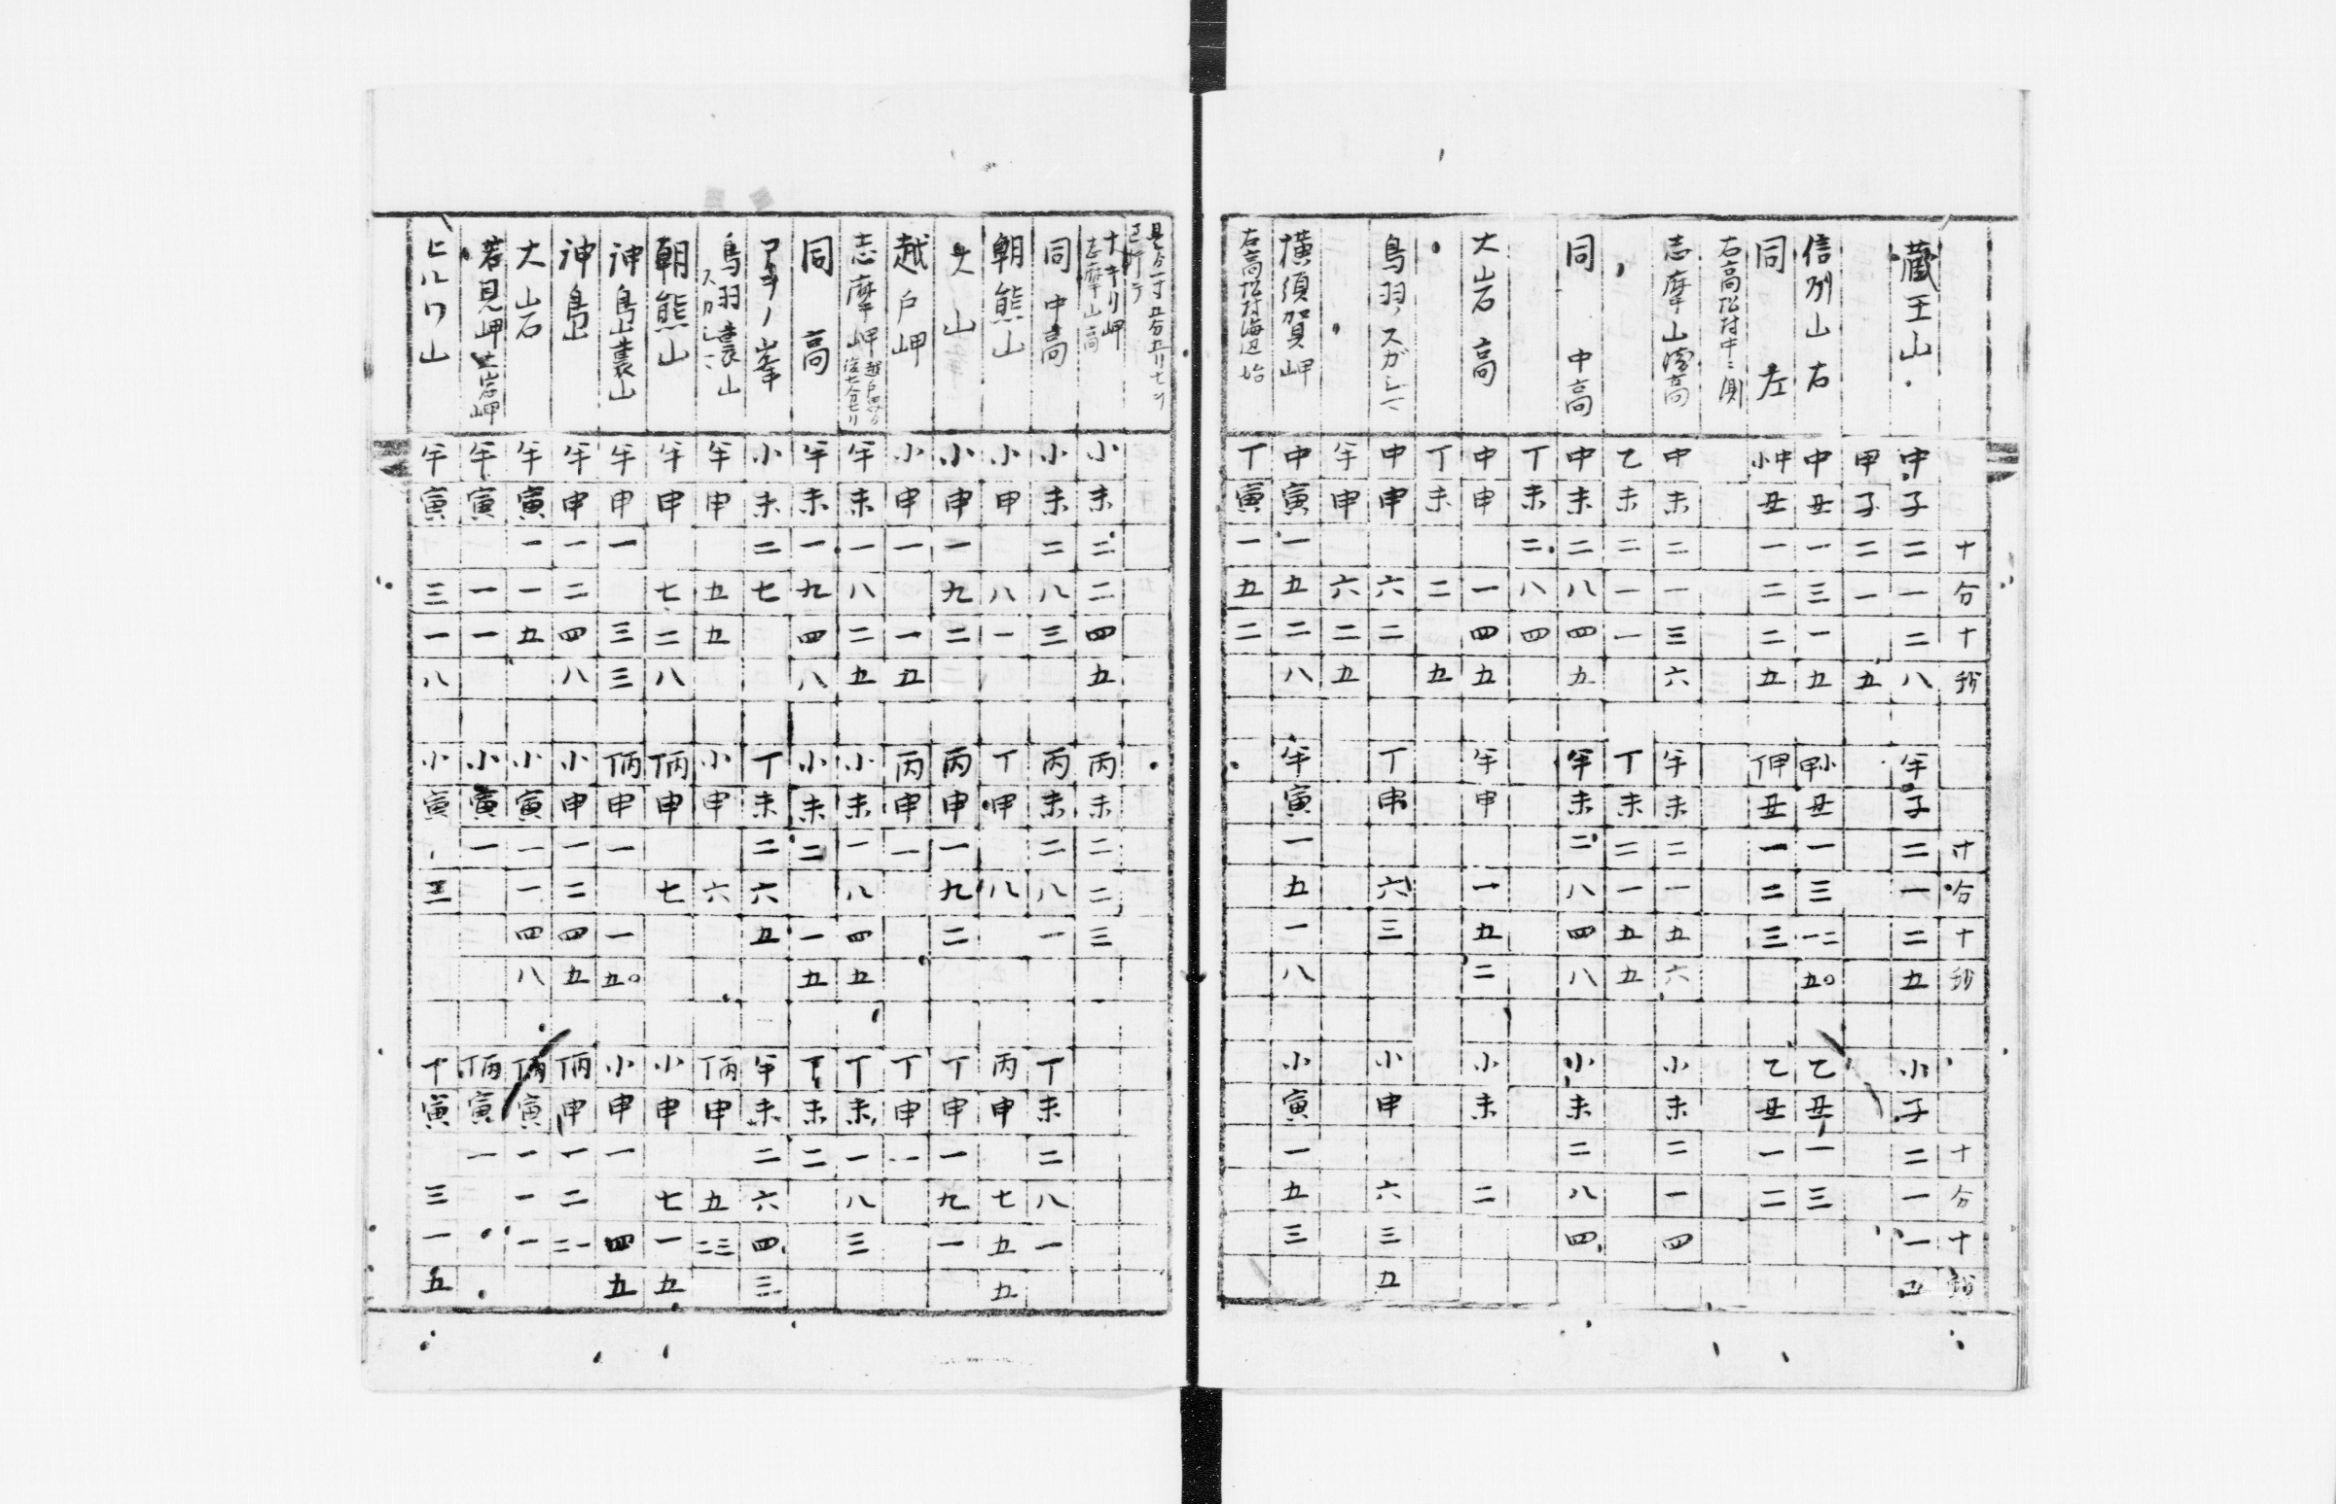 十分十秒 十分十秒 十分十秒
蔵王山 中子二一二八 半子二一二五 小子二一一五
甲子二一五
信州山右 中丑一三一五 小甲丑一三一二五〇 乙丑一三
同左 小中丑一二二五 丁甲丑一二三 乙丑一二
右高松村中ニ測
志摩山高 中未二一三六 半未二一五六 小未二一四
乙未二一一 丁未二一五五
同中高 中未二八四九 半未二八四八 小未二八四
丁未二八四
大岩高 中申一四五 半申一五二 小未二
丁未二五
鳥羽ノスガシマ 中申六二 丁申六三 小申六三五
半申六二五
横須賀岬 中寅一五二八 半寅一五一八 小寅一五三
右高松村海辺始 丁寅一五二
志摩山高 小未二二四五 丙未二二三
同中高 小未二八三 丙未二八一 丁未二八一
朝熊山 小甲八一 丁甲八 丙申七五五
大山 小申一九二 丙申一九二 丁申一九一
越戸岬 小申一一五 丙申一 丁申一
志摩岬 半未一八二五 小未一八四五 丁未一八三
同高 半未一九四八 小未二一五 丁未二
小未二七 丁未二六五 半未二六四三
鳥羽裏山 半申五五 小申六 丁丙申五二三
朝熊山 半申七二八 丁丙申七 小申七一五
神島裏山 半申一三三 丁丙申一一五〇 小申一四五
神島 半申一二四八 小申一二四五 丁丙申一二一二
大岩 半寅一一五 小寅一一四八 丁丙寅一一一
若見岬 半寅一一 小寅一 丁丙寅一
ヒルワ山 半寅三一八 小寅三 丁寅三一五